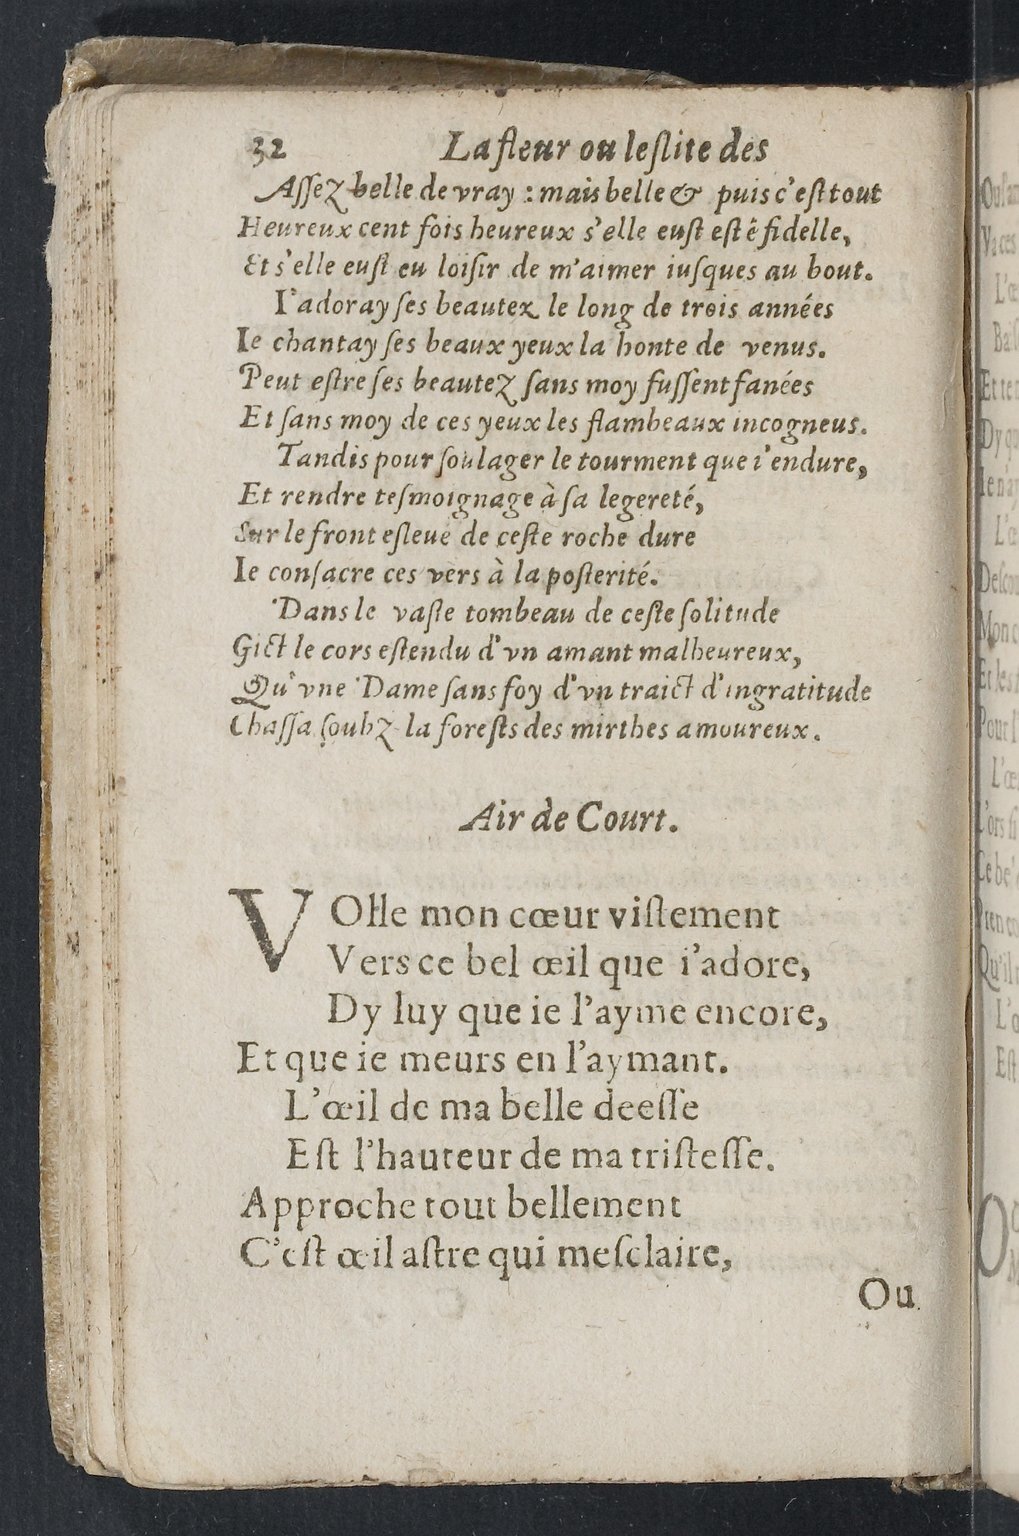 32 La fleur ou leſlite des
Aſſez belle de vray : mais belle & puis c'eſt tout
Heureux cent fois heureux s'elle euſt eſté fidelle,
Et s'elle euſt eu loiſir de m'aimer iuſques au bout.
I'adoray ſes beautez le long de trois années
Ie chantay ſes beaux yeux la honte de venus.
Peut eſtre ſes beautez ſans moy fuſſent fanées
Et ſans moy de ces yeux les flambeaux incogneus.
Tandis pour ſoulager le tourment que i'endure,
Et rendre teſmoignage à ſa legereté,
Sur le front eſleué de ceſte roche dure
Ie conſacre ces vers à la poſterité.
Dans le vaſte tombeau de ceſte ſolitude
Gict le cors eſtendu d'vn amant malheureux,
Qu'vne Dame ſans foy d'vn traict d'ingratitude
Chaſſa ſoubz la foreſts des mirthes amoureux.
Air de Court.
VOlle mon cœur viſtement
Vers ce bel œil que i'adore,
Dy luy que ie l'ayme encore,
Et que ie meurs en l'aymant.
L'œil de ma belle deeſſe
Eſt l'hauteur de ma triſteſſe.
Approche tout bellement
C'eſt œil aſtre qui meſclaire,
Ou